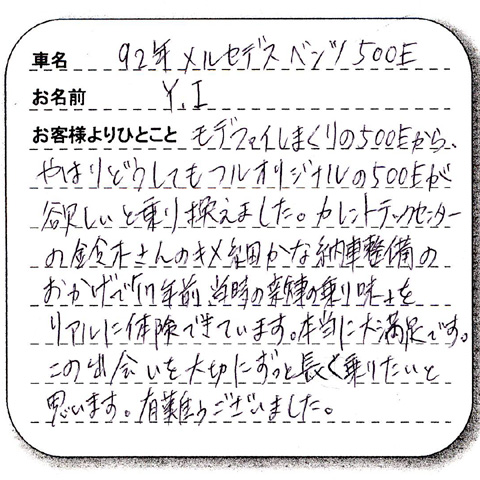 車名 92年 メルセデス ベンツ 500E
お名前 Y.I
お客様よりひとこと モデファイしまくりの500Eから、
やはりどうしてもフルオリジナルの500Eが
欲しいと乗り換えました。カレントテックセンター
の鈴木さんのキメ細かな納車整備の
おかげで17年前当時の新車の乗り味を
リアルに体険できています。本当に大満足です。
この出会いを大切にずっと長く乗りたいと
思います。有難うございました。